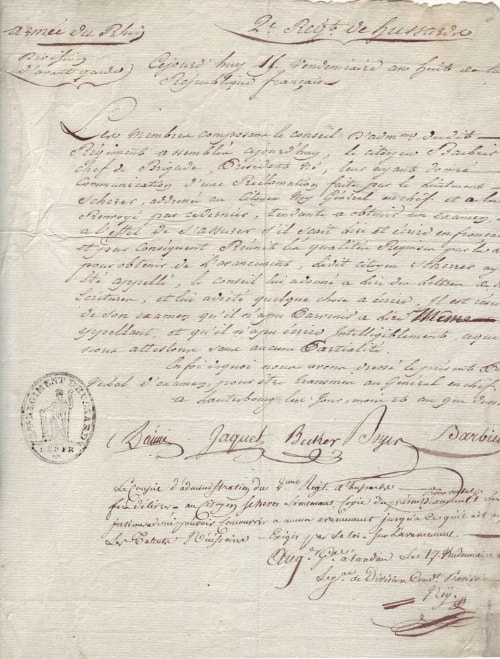 Armée du Rhin
2e Regt. de hussards
Division
d'avant garde
Ajourd'huy 16 Vendemiaire an huit de la
République française
Les Membres composant le conseil D'admon dudit
Régiment assemblés ajourd'huy, le citoyen Barbier
chef de Brigade, Président né, leur ayant donné
Communication d'une Réclamation faite par le Lieutenant
Scherer, adressée au Citoyen Ney Général en chef et a lui
Renvoyé par ce dernier, tendante a obtenir un examen
a l'effet de s'assurer s'il sait lire et écrire en français
et par conséquent Réunit les qualités Requises par la
pour obtenir de l'avancement, ledit citoyen Scherer
été appellé, le conseil lui adonné a lire des lettres
Ecritures, et lui adicté quelque chose a écrire. Il est
de son examen qu'il n'apu Parvenir a lire Meme
eppellant, et qu'il n'apu écrire Intelligiblement, ce que
nous attestons sans aucune Partialité.
En foi de quoi nous avons dressé le présent
Verbal d'examen, pour être transmis au Général en chef
a Lauterbourg les Jour, mois et an que
REGIMENT D'HUSSARDS
Jaquet Becker Barbier
Le conseil d'administration du 2eme Regt. d'hussards
fera délivrer au citoyen Scherer Lieutenant copie du
pouvoir concourir a aucun avancement jusqu'à ce qu'il
Les Talents Nécessaires Exigés par la loi sur l'avancement.
a Landau le 17 Vendemiaire
Le Gal. de Division
Ney